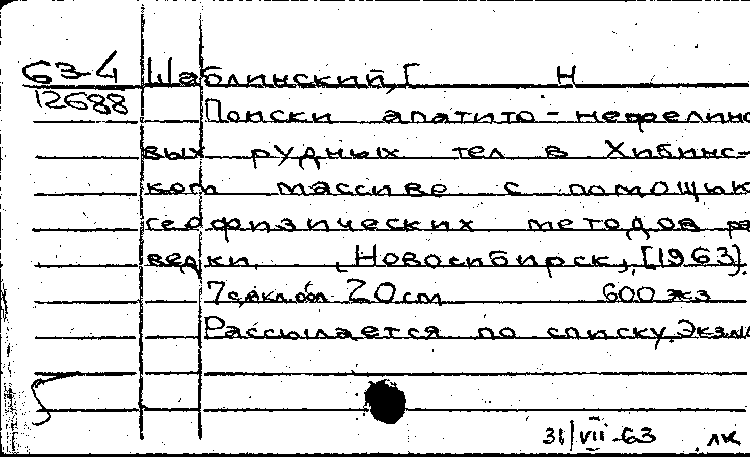 63-4 Шаблинский, Г Н
12688
Поиски апатито-нефелино
вых рудных тел в Хибинс-
ком массиве с помощью
геофизических методов раз
ведки. [Новосибирск], [1963].
7с, вкл.обл. 20 см 600 экз
Рассылается по списку. Экземпл
31/VII-63 ЛК